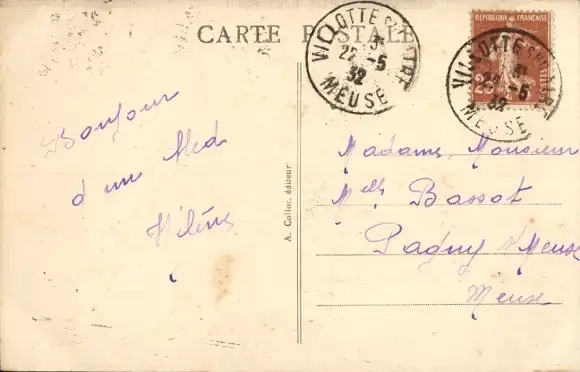 CARTE POSTALE
VILLOTTE
22 -5
32
MEUSE
RÉPUBLIQUE FRANÇAISE
POSTES
VILLOTTE
22 -5
32
MEUSE
Bonjour
d'un
Hélène
A. Collot, éditeur
Madame, Monsieur
Melle Bassot
Pagny s/Meuse
Meuse